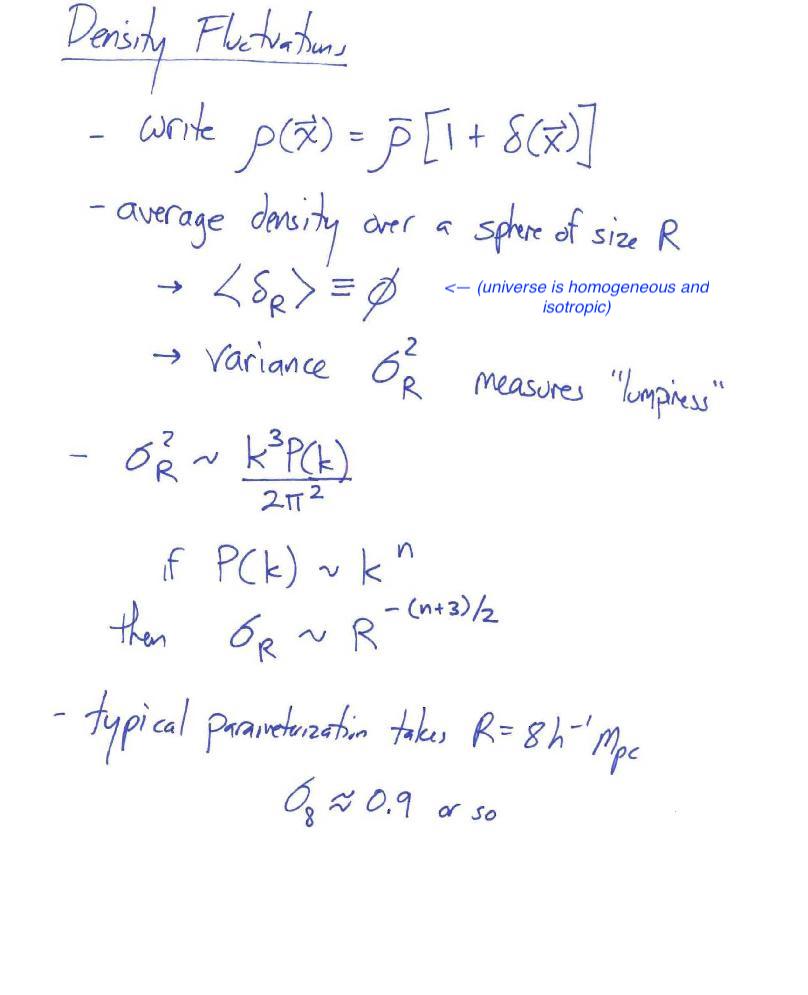 Density Fluctuations
- write ρ(x⃗) = ρ̄ [1 + δ(x⃗)]
- average density over a sphere of size R
→ <δ_R> ≡ ∅ <— (universe is homogeneous and
isotropic)
→ variance σ_R^2 measures "lumpiness"
- σ_R^2 ~ k^3P(k)/2π^2
if P(k) ~ k^n
then σ_R ~ R^-(n+3)/2
- typical parameterization takes R = 8h^-1 Mpc
σ_8 ≈ 0.9 or so